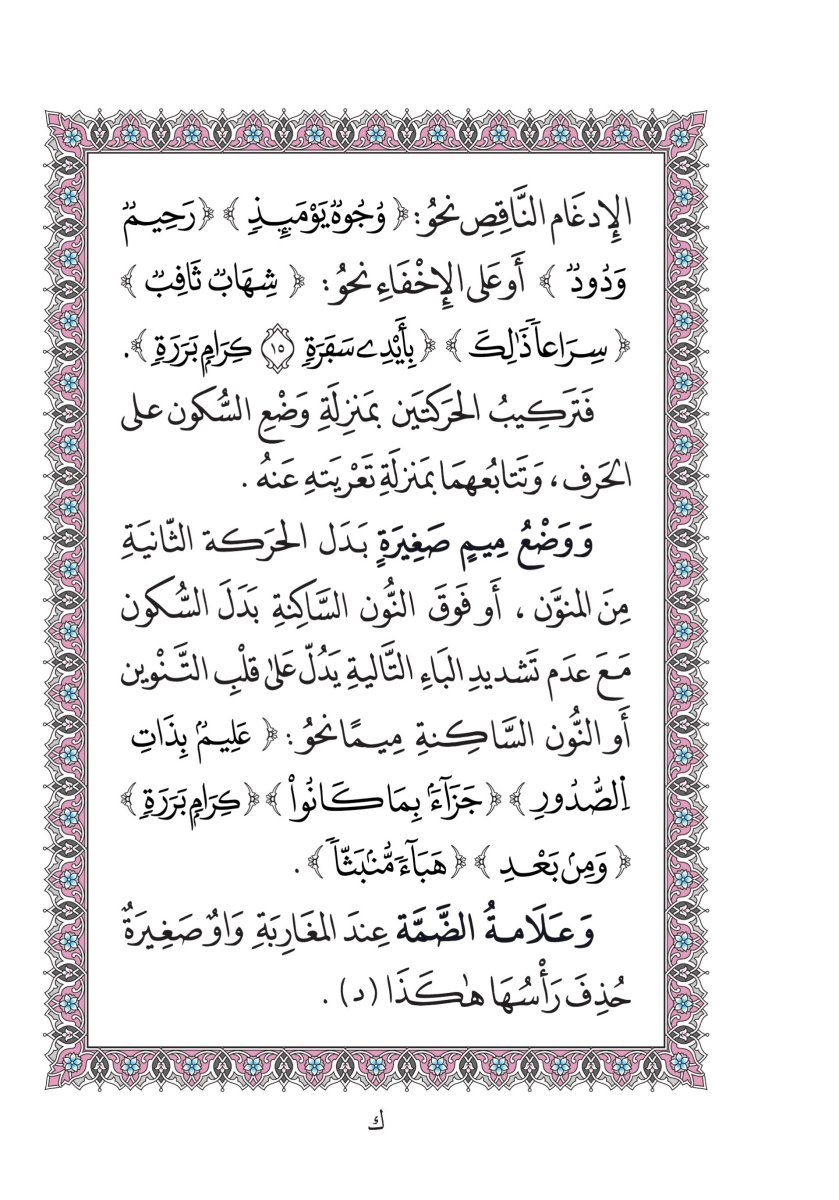 الإِدغَام النَّاقِصِ نحوُ: ﴿ وُجُوهٌ يَوْمَئِذٍ ﴾ ﴿ رَحِيمٌ
وَدُودٌ ﴾ أَو عَلى الإِخْفَاءِ نحوُ: ﴿ شِهَابٌ ثَاقِبٌ ﴾
﴿ سِرَاعاً ذَٰلِكَ ﴾ ﴿ بِأَيْدِے سَفَرَةٍ ١٥ كِرَامِۭ بَرَرَةٍ ﴾.
فَتَركِيبُ الحَركتَين بمَنزِلَةِ وَضْعِ السُّكون على
الحَرف، وَتَتابُعهمَا بمَنزلَةِ تَعْريَتهِ عَنهُ .
وَوَضْعُ مِيمٍ صَغِيرَةٍ بَدَل الحَركة الثّانيَةِ
مِنَ المنوَّن ، أَو فَوقَ النُّون السَّاكِنةِ بَدَلَ السُّكون
مَعَ عدَم تَشديدِ البَاءِ التَّاليةِ يَدُلّ عَلىٰ قلْبِ التَّنْوين
أَو النُّون السَّاكِنةِ مِيمًا نحوُ: ﴿ عَلِيمُۢ بِذَاتِ
اِ۬لصُّدُورِ ﴾ ﴿ جَزَآءَۢ بِمَا كَانُواْ ﴾ ﴿ كِرَامِۭ بَرَرَةٍ ﴾
﴿ وَمِنۢ بَعْدِ ﴾ ﴿ هَبَآءٗ مُّنۢبَثّاٗ ﴾ .
وَعَلَامةُ الضَّمَّة عِندَ المغَارِبَةِ وَاوٌ صَغِيرَةٌ
حُذِفَ رَأْسُهَا هٰكَذَا (د) .
ك